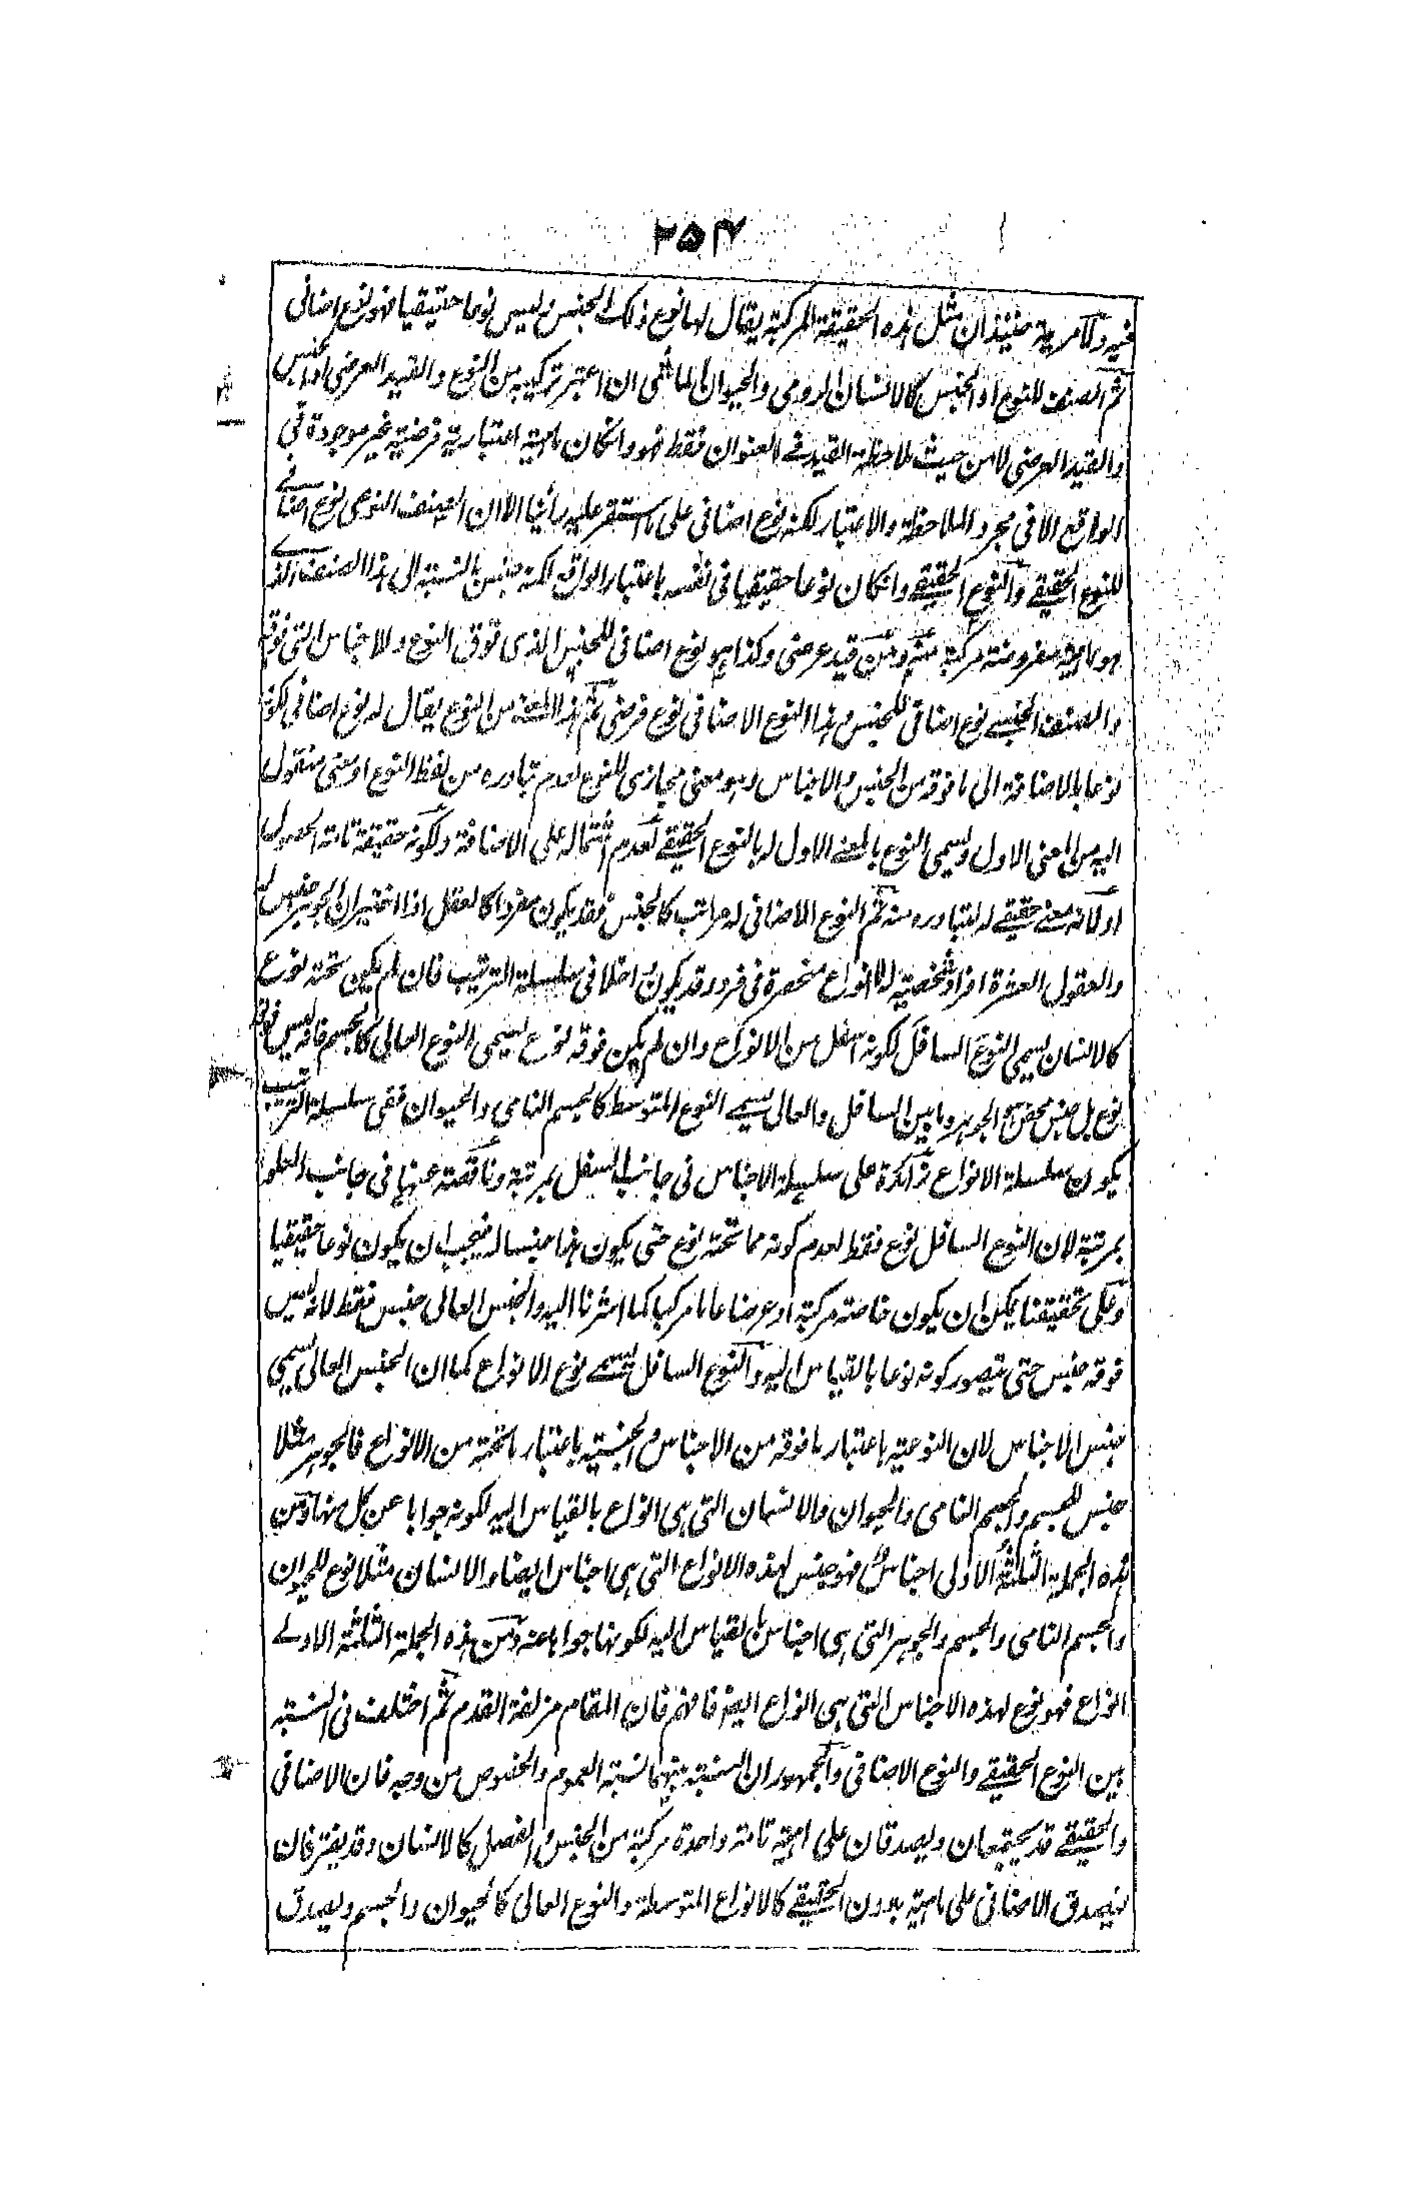 ۲۵۷
فيه ولا مرية حينئذ ان مثل هذه الحقيقة المركبة يقال لها نوع ذلك الجنس وليس نوعا حقيقيا فهو نوع اضافى
ثم الصنف للنوع او الجنس كالانسان الرومى والحيوان الماشى ان اعتبر تركيبه من النوع والقيد العرضى او الجنس
والقيد العرضى لا من حيث ملاحظة القيد فے العنوان فقط فهو وانكان ماهية اعتبارية فرضية غير موجودة فى
الواقع الا فى مجرد الملاحظة والاعتبار لكنه نوع اضافى على ما استقر عليه رأينا الا ان الصنف النوعى نوع اضافے
للنوع الحقيقے والنوع الحقيقے وانكان نوعا حقيقيا فى نفسه باعتبار الواقع لكنه جنس بالنسبة الى هذا الصنف الذے
هو ماهية مفروضة مركبة منه ومن قيد عرضى وكذا هو نوع اضافى للجنس الذى فوق النوع ولاجناس التى فوقه
والصنف الجنسے نوع اضافى للجنس وهذا النوع الاضافى نوع فرضى ثم هذا المعنے من النوع يقال له نوع اضافى لكونه
نوعا بالاضافة الى ما فوقه من الجنس والاجناس وهو معنى مجازى للنوع لعدم تبادره من لفظ النوع او معنى منقول
اليه من المعنى الاول ويسمى النوع بالمعنے الاول له بالنوع الحقيقے لعدم اشتماله على الاضافة ولكونه حقيقة تامة الحصول
او لانه معنے حقيقے له لتبادره منه ثم النوع الاضافى له مراتب كالجنس فقد يكون مفردا كالعقل اذا اختير ان الجوهر جنس له
والعقول العشرة افراد شخصية له لا انواع منحصرة فى فرد وقد يكون داخلا فى سلسلة الترتيب فان لم يكن تحته نوع
كالانسان يسمى النوع السافل لكونه اسفل من الانواع وان لم يكن فوقه نوع يسمى النوع العالى كالجسم فانه ليس فوقه
نوع بل جنس محض هو الجوهر وما بين السافل والعالى يسمے النوع المتوسط كالجسم النامى والحيوان ففى سلسلة الترتيب
يكون سلسلة الانواع زائدة على سلسلة الاجناس فى جانب السفل بمرتبة وناقصة عنها فى جانب العلو
بمرتبة لان النوع السافل نوع فقط لعدم كونه مما تحته نوع حتى يكون هذا جنسا له فيجب ان يكون نوعا حقيقيا
وعلى تحقيقنا يمكن ان يكون خاصة مركبة او عرضا عاما مركبا كما اشرنا اليه والجنس العالى جنس فقط لانه ليس
فوقه جنس حتى يتصور كونه نوعا بالقياس اليه والنوع السافل يسمے نوع الانواع كما ان الجنس العالى يسمى
جنس الاجناس لان النوعية باعتبار ما فوقه من الاجناس والجنسية باعتبار ما تحته من الانواع فالجوهر مثلا
جنس للجسم والجسم النامى والحيوان والانسان التى هى انواع بالقياس اليه لكونه جوابا عن كل منها ومن
هذه الجملة الثلثة الاولى اجناس فهو جنس لهذه الانواع التى هى اجناس ايضا والانسان مثلا نوع للحيوان
والجسم النامى والجسم والجوهر التى هى اجناس بالقياس اليه لكونها جوابا عنه ومن هذه الجملة الثلثة الاولے
انواع فهو نوع لهذه الاجناس التى هى انواع ايضا فافهم فان المقام مزلقة القدم ثم اختلف فى النسبة
بين النوع الحقيقے والنوع الاضافى والجمهور ان النسبة بينهما نسبة العموم والخصوص من وجه فان الاضافى
والحقيقے قد يجتمعان ويصدقان على ماهية تامة واحدة مركبة من الجنس والفصل كالانسان وقد يفترقان
فيصدق الاضافى على ماهية بدون الحقيقے كالانواع المتوسطة والنوع العالى كالحيوان والجسم ويصدق